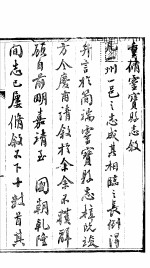 重脩靈寶縣志敘
凡州邑之志成其相臨之長例得
弁言於簡端靈寶縣志稿既竣
方令慶甫請敘於余余不獲辭
碩自前明嘉靖至 國朝乾隆
間志已屢脩敘不下十數首其